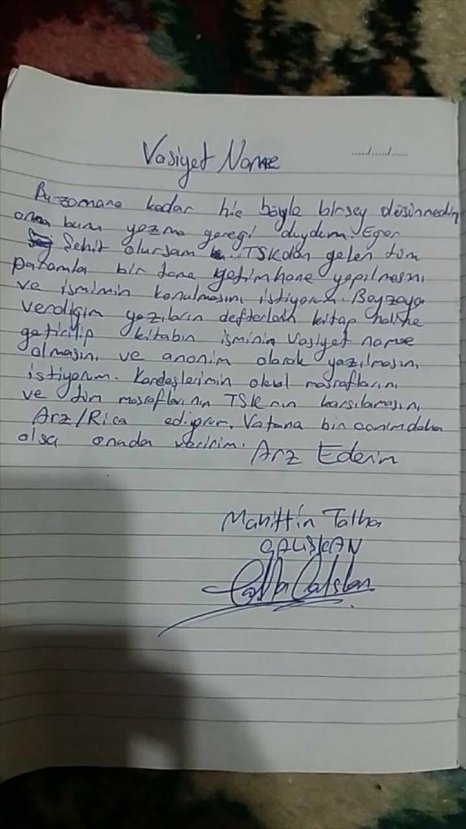 Vasiyet Name
...../...../.....
Bu zamana kadar hic böyle birsey düsünmedim
ama bunu yazma geregi duydum. Eger
Sehit olursam TSKdan gelen tüm
paramla bir tane yetimhane yapılmasını
ve ismimin konulmasını istiyorum. Beyzaya
verdigim yazıların defterlerin kitap haline
getirilip kitabın isminin Vasiyet name
olmasını ve anonim olarak yazılmasını
istiyorum. Kardeslerimin okul masraflarını
ve tüm masraflarının TSK nın karsılamasını
Arz/Rica ediyorum. Vatana bin canım daha
olsa onuda veririm.
Arz Ederim
Mahittin Talha
ÇALIŞKAN